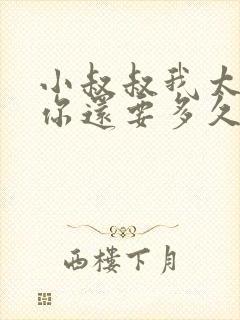 小叔叔我太
你還要多久
西樓下月